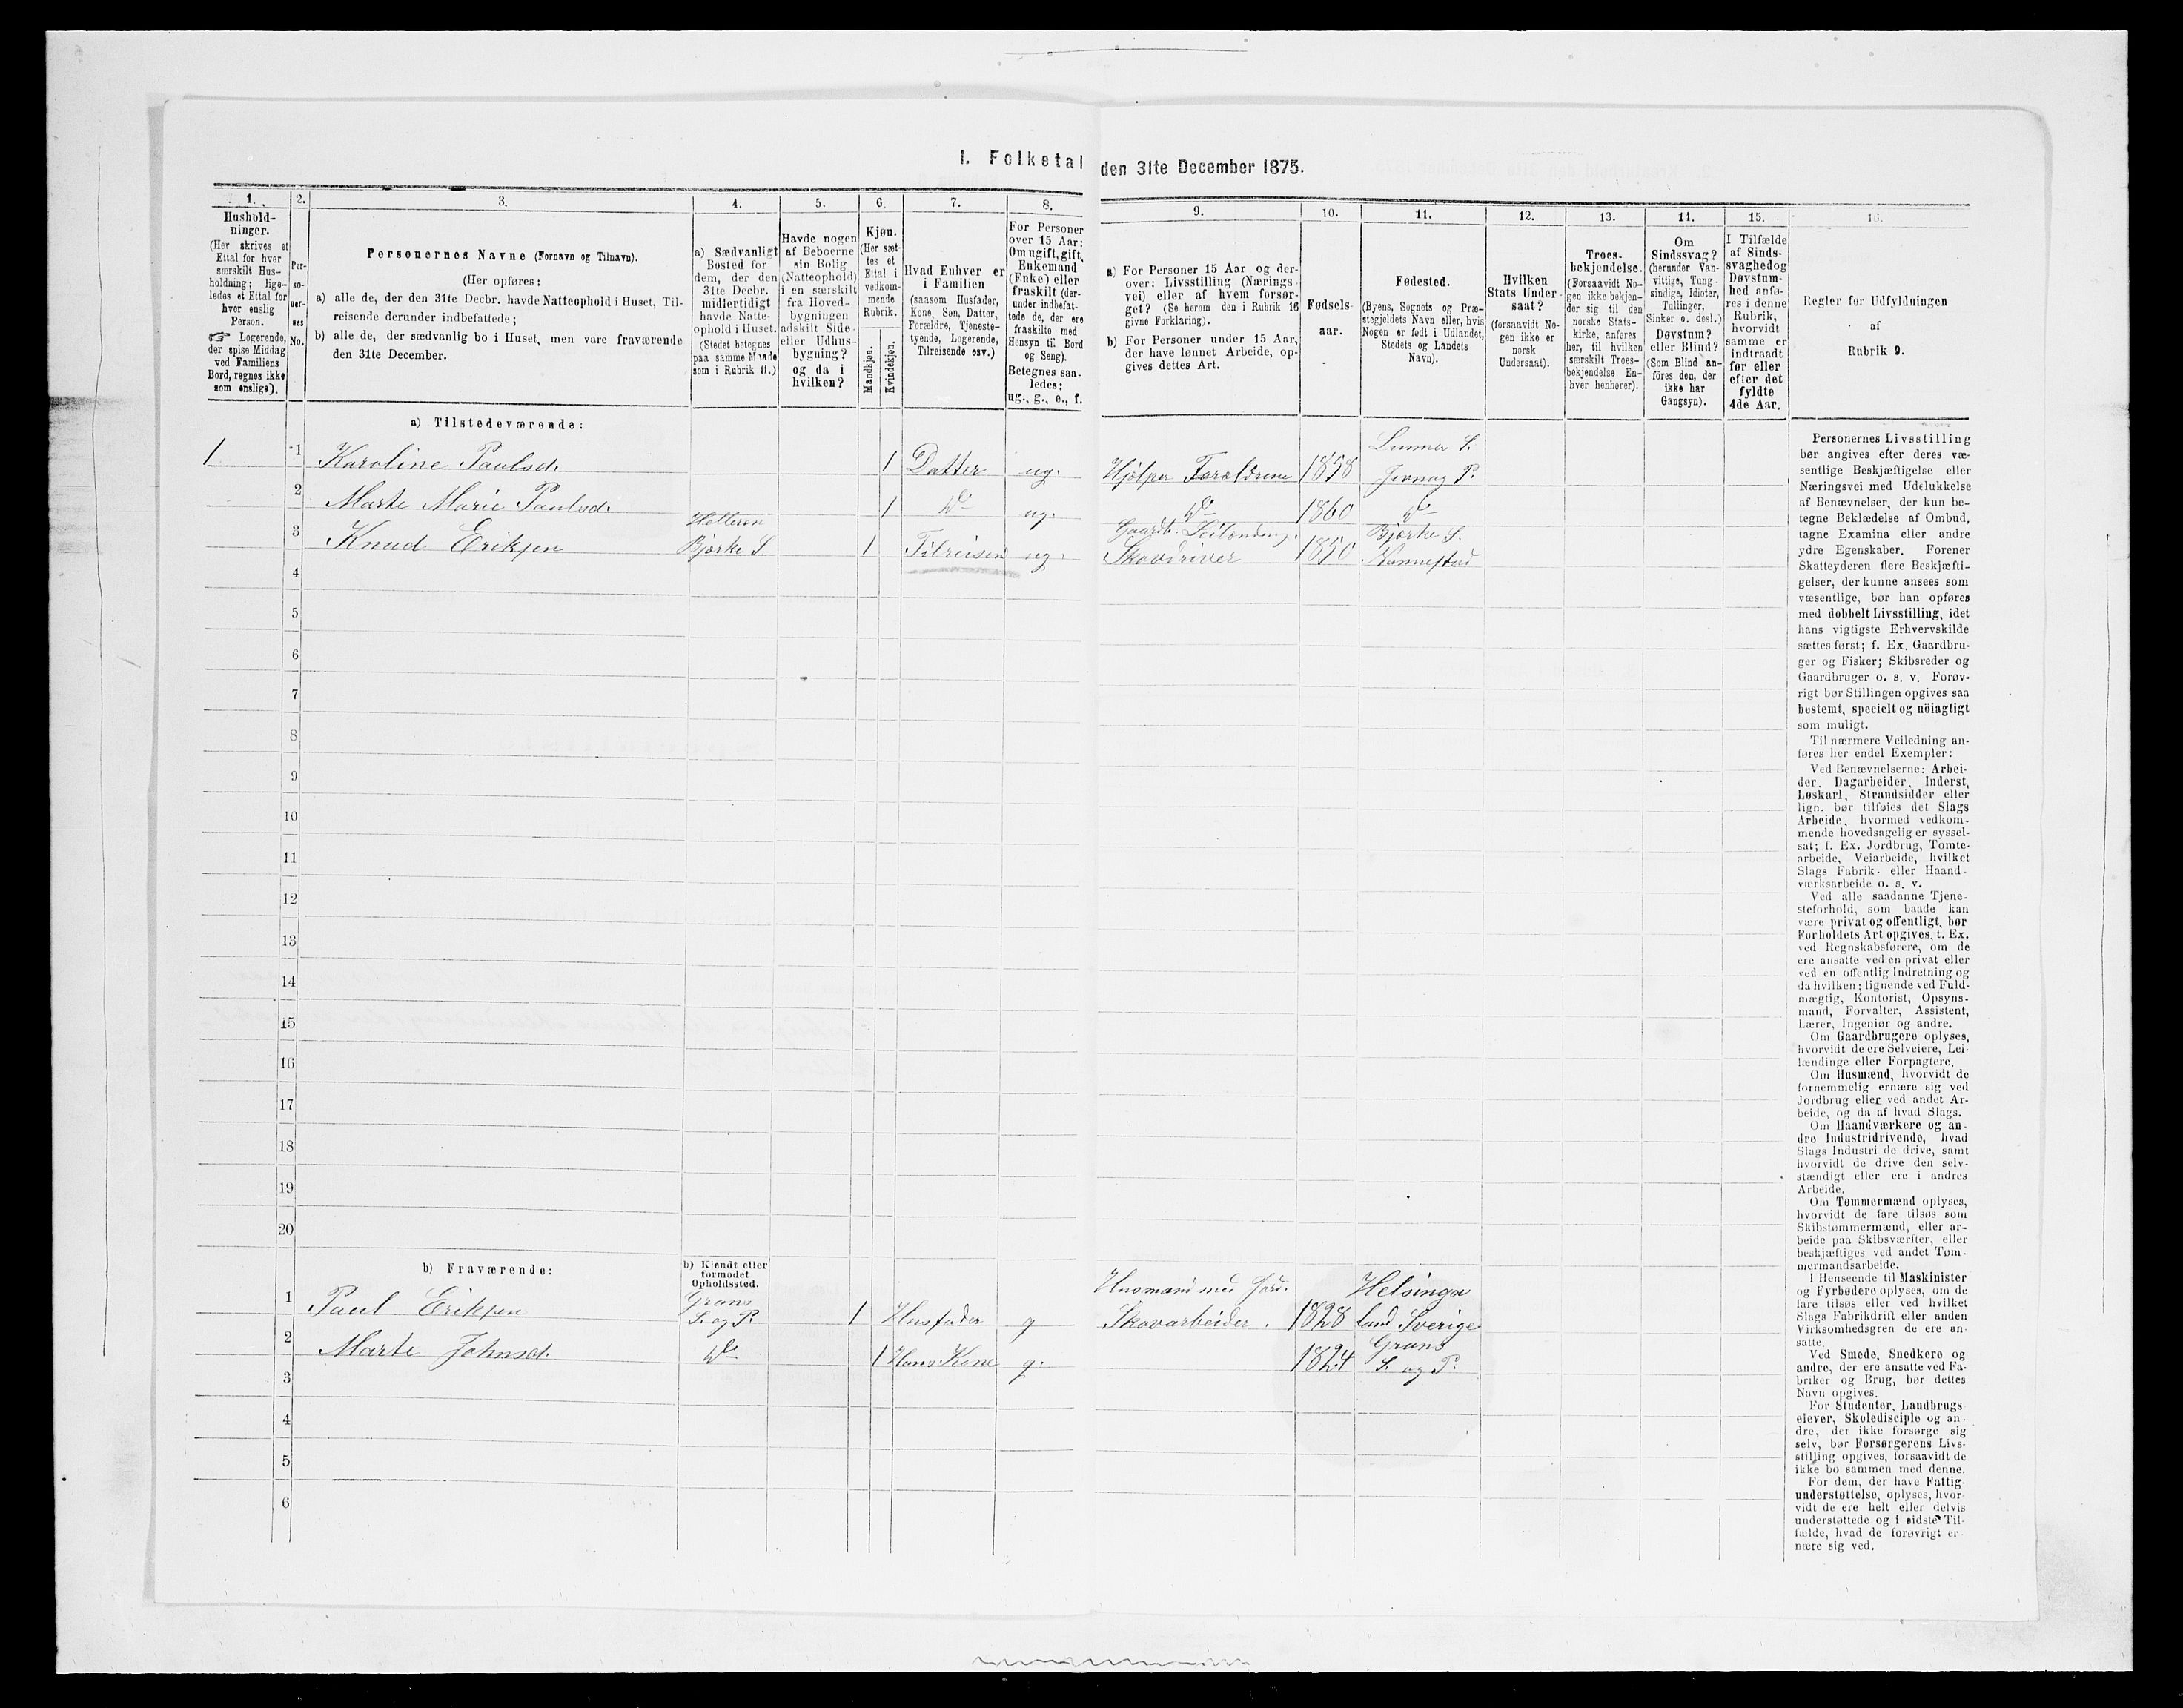 I. Folketal den 31te December 1875.
1.
Hushold-
ninger.
(Her skrives et
Ettal for hver
særskilt Hus-
holdning; lige-
ledes et Ettal for
hver enslig
Person.
☞ Logerende,
der spise Middag
ved Familiens
Bord, regnes ikke
som enslige).
2.
Per-
so-
ner-
nes
No.
3.
Personernes Navne (Fornavn og Tilnavn).
(Her opføres:
a) alle de, der den 31te Decbr. havde Natteophold i Huset, Til-
reisende derunder indbefattede;
b) alle de, der sædvanlig bo i Huset, men vare fraværende
den 31te December.
4.
a) Sædvanligt
Bosted for
dem, der den
31te Decbr.
midlertidigt
havde Natte-
ophold i Huset.
(Stedet betegnes
paa samme Maade
som i Rubrik 11.)
5.
Havde nogen
af Beboerne
sin Bolig
(Natteophold)
i en særskilt
fra Hoved-
bygningen
adskilt Side-
eller Udhus-
bygning?
og da i
hvilken?
6.
Kjøn.
(Her sæt-
tes et
Ettal i
vedkom-
mende
Rubrik.
Mandkjøn.
Kvindekjøn.
7.
Hvad Enhver er
i Familien
(saasom Husfader,
Kone, Søn, Datter,
Forældre, Tjeneste-
tyende, Logerende,
Tilreisende osv.)
8.
For Personer
over 15 Aar:
Om ugift, gift,
Enkemand
(Enke) eller
fraskilt (der-
under indbefat-
tede de, der ere
fraskilte med
Hensyn til Bord
og Seng).
Betegnes saa-
ledes:
ug., g., e., f.
9.
a) For Personer 15 Aar og der-
over: Livsstilling (Nærings-
vei) eller af hvem forsør-
get? (Se herom den i Rubrik 16
givne Forklaring).
b) For Personer under 15 Aar,
der have lønnet Arbeide, op-
gives dettes Art.
10.
Fødsels-
aar.
11.
Fødested.
(Byens, Sognets og Præ-
stegjeldets Navn eller, hvis
Nogen er født i Udlandet,
Stedets og Landets
Navn).
12.
Hvilken
Stats Under-
saat?
(forsaavidt No-
gen ikke er
norsk
Undersaat).
13.
Troes-
bekjendelse.
(Forsaavidt No-
gen ikke bekjen-
der sig til den
norske Stats-
kirke, anføres
her, til hvilken
særskilt Troes-
bekjendelse En-
hver henhører).
14.
Om
Sindssvag?
(herunder Van-
vittige, Tung-
sindige, Idioter,
Tullinger,
Sinker o. desl.)
Døvstum?
eller Blind?
(Som Blind an-
føres den, der
ikke har
Gangsyn).
15.
I Tilfælde
af Sinds-
svaghed og
Døvstum-
hed anfø-
res i denne
Rubrik,
hvorvidt
samme er
indtraadt
før eller
efter det
fyldte
4de Aar.
16.
Regler for Udfyldningen
af
Rubrik 9.
a) Tilstedeværende:
Lunner S.
1 1 Karoline Paulsd. 1 Datter ug. Hjælper Forældrene 1858 Jevnag P.
2 Marte Marie Paulsd. 1 Do ug. Do 1860 Do
Bjørke S.
3 Knud Eriksen Bjørke S 1 Tilreisen ug. Skovdriver 1850 Nannestad
4
5
6
7
8
9
10
11
12
13
14
15
16
17
18
19
20
b) Fraværende:
b) Kjendt eller
formodet
Opholdssted.
Grans Husmand med Jord. Helsinga
1 Paul Eriksen S. og P. 1 Husfader g Skovarbeider. 1828 land Sverige
Grans
2 Marte Johnsd. Do 1 Hans Kone g. 1824 S. og P.
3
4
5
6
Personernes Livsstilling
bør angives efter deres væ-
sentlige Beskjæftigelse eller
Næringsvei med Udelukkelse
af Benævnelser, der kun be-
tegne Beklædelse af Ombud,
tagne Examina eller andre
ydre Egenskaber. Forener
Skatteyderen flere Beskjæfti-
gelser, der kunne ansees som
væsentlige, bør han opføres
med dobbelt Livsstilling, idet
hans vigtigste Erhvervskilde
sættes først; f. Ex. Gaardbru-
ger og Fisker; Skibsreder og
Gaardbruger o. s. v. Forøv-
rigt bør Stillingen opgives saa
bestemt, specielt og nöiagtigt
som muligt.
Til nærmere Veiledning an-
føres her endel Exempler:
Ved Benævnelserne: Arbei-
der, Dagarbeider, Inderst,
Løskarl, Strandsidder eller
lign. bør tilføies det Slags
Arbeide, hvormed vedkom-
mende hovedsagelig er syssel-
sat; f. Ex. Jordbrug, Tomte-
arbeide, Veiarbeide, hvilket
Slags Fabrik- eller Haand-
værksarbeide o. s. v.
Ved alle saadanne Tjene-
steforhold, som baade kan
være privat og offentligt, bør
Forholdets Art opgives, t. Ex.
ved Regnskabsførere, om de
ere ansatte ved en privat eller
ved en offentlig Indretning og
da hvilken; lignende ved Fuld-
mægtig, Kontorist, Opsyns-
mand, Forvalter, Assistent,
Lærer, Ingeniør og andre.
Om Gaardbrugere oplyses,
hvorvidt de ere Selveiere, Lei-
lændinge eller Forpagtere.
Om Husmænd, hvorvidt de
fornemmelig ernære sig ved
Jordbrug eller ved andet Ar-
beide, og da af hvad Slags.
Om Haandværkere og an-
dre Industridrivende, hvad
Slags Industri de drive, samt
hvorvidt de drive den selv-
stændigt eller ere i andres
Arbeide.
Om Tømmermænd oplyses,
hvorvidt de fare tilsøs som
Skibstømmermænd, eller ar-
beide paa Skibsværfter, eller
beskjæftiges ved andet Tøm-
mermandsarbeide.
I Henseende til Maskinister
og Fyrbødere oplyses, om de
fare tilsøs eller ved hvilket
Slags Fabrikdrift eller anden
Virksomhedsgren de ere an-
satte.
Ved Smede, Snedkere og
andre, der ere ansatte ved Fa-
briker og Brug, bør dettes
Navn opgives.
For Studenter, Landbrugs-
elever, Skoledisciple og an-
dre, der ikke forsørge sig
selv, bør Forsørgerens Livs-
stilling opgives, forsaavidt de
ikke bo sammen med denne.
For dem, der have Fattig-
understøttelse, oplyses, hvor-
vidt de ere helt eller delvis
understøttede og i sidste Til-
fælde, hvad de forøvrigt er-
nære sig ved.